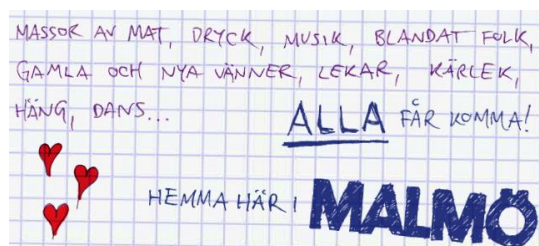 MASSOR AV MAT, DRYCK, MUSIK, BLANDAT FOLK,
GAMLA OCH NYA VÄNNER, LEKAR, KÄRLEK,
HÄNG, DANS... ALLA FÅR KOMMA!
HEMMA HÄR I MALMÖ